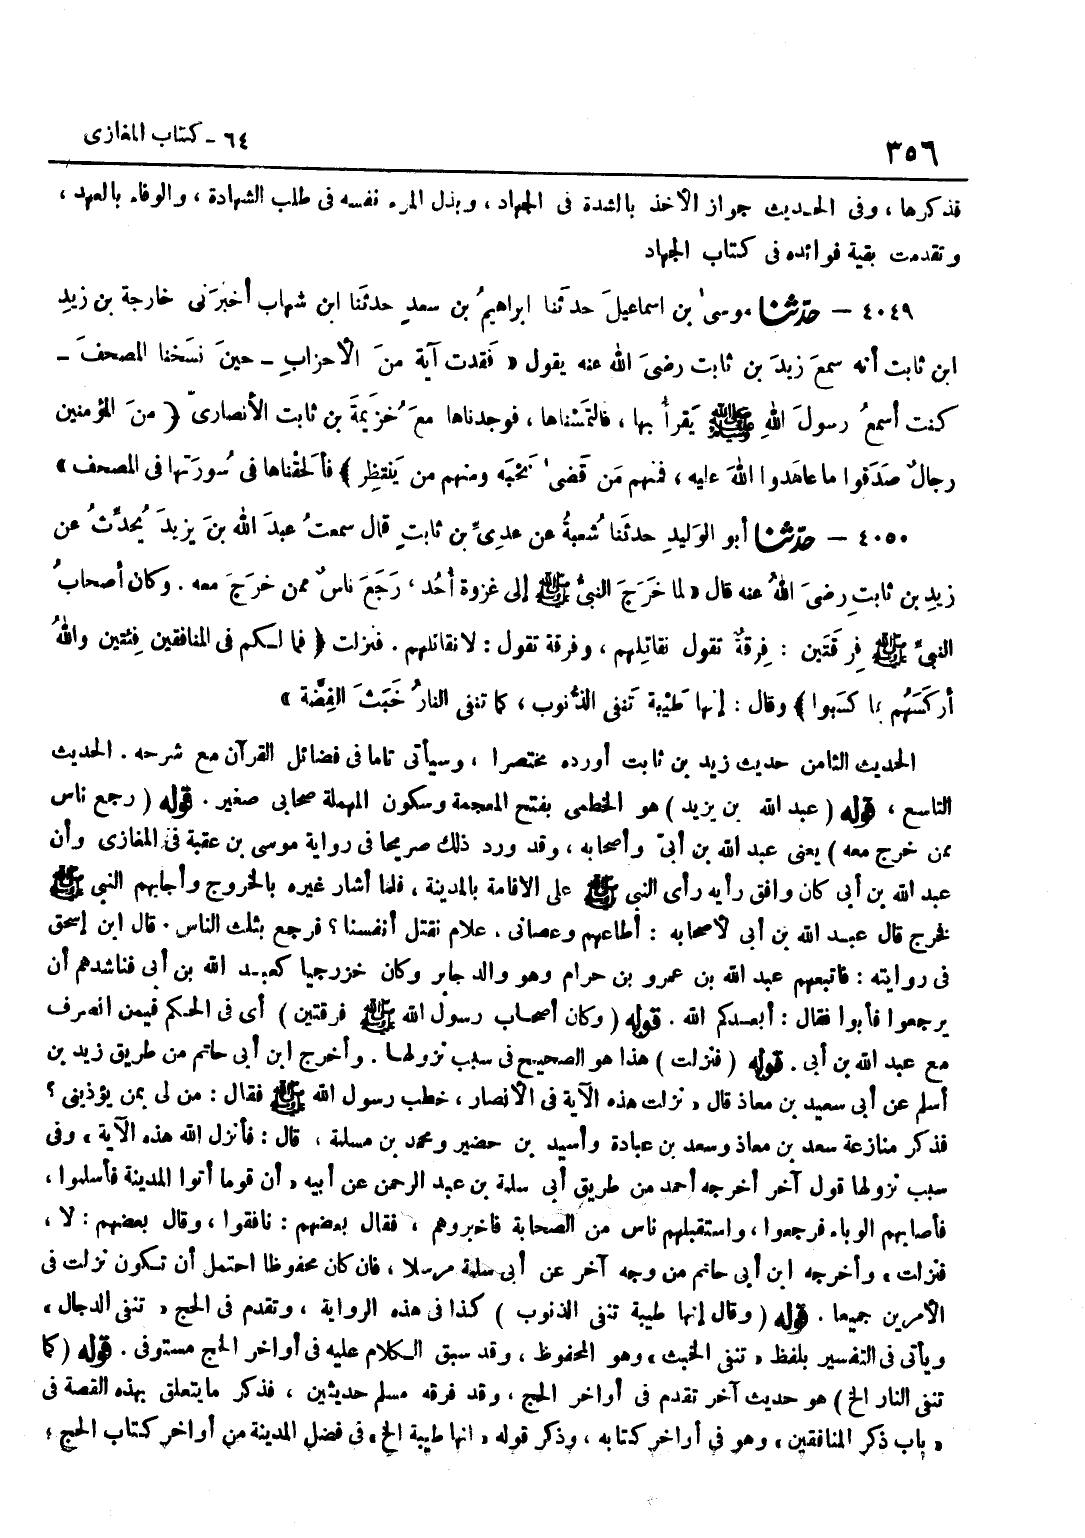 ٣٥٦
٦٤ - كتاب المغازى
فذكرها ، وفى الحديث جواز الأخذ بالشدة فى الجهاد ، وبذل المرء نفسه فى طلب الشهادة ، والوفاء بالعهد ،
وتقدمت بقية فوائده فى كتاب الجهاد
٤٠٤٩ - حدّثنا موسىٰ بن اسماعيلَ حدثنا ابراهيمُ بن سعدٍ حدثَنا ابن شهاب أخبرَنى خارجة بن زيدِ
ابن ثابت أنه سمعَ زيدَ بن ثابت رضىَ الله عنه يقول « فَقدت آية منَ الأحزابِ - حينَ نسَخنا المصحفَ -
كنت أسمعُ رسولَ اللهِ ﷺ يَقرأُ بها ، فالتمَسْناها ، فوجدناها معَ خُزَيمةَ بن ثابت الأنصارىّ ﴿ منَ المؤمنين
رجالٌ صدَقوا ما عاهَدوا اللهَ عليه ، فمنهم مَن قَضىٰ نَحْبَه ومنهم من يَنتظِر ﴾ فألحقْناها فى سُورَتها فى المصحف »
٤٠٥٠ - حدّثنا أبو الوَليدِ حدثَنا شُعبةُ عن عدىِّ بن ثابتٍ قال سمعتُ عبدَ الله بنَ يزيدَ يُحدِّثُ عن
زيدِ بن ثابتِ رضىَ اللهُ عنه قال « لما خرَجَ النبىُّ ﷺ إلى غزوة أُحُد ، رَجَعَ ناسٌ ممن خرَجَ معه . وكان أصحابُ
النبىِّ ﷺ فِرقَتَين : فِرقةٌ تقول نقاتِلهم ، وفرقة تقول : لا نقاتلهم . فنزلت ﴿ فما لـكم فى المنافقين فِئتين واللهُ
أركَسَهُم بما كسَبوا ﴾ وقال : إنها طَيْبة تَنفى الذُّنوب ، كما تنفى النارُ خَبَثَ الفِضَّة »
الحديث الثامن حديث زيد بن ثابت أورده مختصرا ، وسيأتى تاما فى فضائل القرآن مع شرحه . الحديث
التاسع ، قوله ( عبد الله بن يزيد ) هو الخطمى بفتح المعجمة وسكون المهملة صحابى صغير . قوله ( رجع ناس
ممن خرج معه ) يعنى عبد الله بن أبىّ وأصحابه ، وقد ورد ذلك صريحا فى رواية موسى بن عقبة فى المغازى وأن
عبد الله بن أبى كان وافق رأيه رأى النبى ﷺ على الاقامة بالمدينة ، فلما أشار غيره بالخروج وأجابهم النبى ﷺ
فخرج قال عبد الله بن أبى لأصحابه : أطاعهم وعصانى . علام نقتل أنفسنا ؟ فرجع بثلث الناس . قال ابن إسحق
فى روايته : فاتبعهم عبد الله بن عمرو بن حرام وهو والد جابر وكان خزرجيا كعبد الله بن أبى فناشدهم أن
يرجعوا فأبوا فقال : أبعدكم الله . قوله ( وكان أصحاب رسول الله ﷺ فرقتين ) أى فى الحكم فيمن انصرف
مع عبد الله بن أبى . قوله ( فنزلت ) هذا هو الصحيح فى سبب نزولها . وأخرج ابن أبى حاتم من طريق زيد بن
أسلم عن أبى سعيد بن معاذ قال « نزلت هذه الآية فى الأنصار ، خطب رسول الله ﷺ فقال : من لى بمن يؤذينى ؟
فذكر منازعة سعد بن معاذ وسعد بن عبادة وأسيد بن حضير ومحمد بن مسلمة ، قال : فأنزل الله هذه الآية » وفى
سبب نزولها قول آخر أخرجه أحمد من طريق أبى سلمة بن عبد الرحمن عن أبيه « أن قوما أتوا المدينة فأسلموا ،
فأصابهم الوباء فرجعوا ، واستقبلهم ناس من الصحابة فاخبروهم ، فقال بعضهم : نافقوا ، وقال بعضهم : لا ،
فنزلت » وأخرجه ابن أبى حاتم من وجه آخر عن أبى سلمة مرسلا ، فان كان محفوظا احتمل أن تكون نزلت فى
الأمرين جميعا . قوله ( وقال إنها طيبة تنفى الذنوب ) كذا فى هذه الرواية ، وتقدم فى الحج « تنفى الدجال »
ويأتى فى التفسير بلفظ « تنفى الخبث » وهو المحفوظ ، وقد سبق الـكلام عليه فى أواخر الحج مستوفى . قوله ( كما
تنفى النار الخ ) هو حديث آخر تقدم فى أواخر الحج ، وقد فرقه مسلم حديثين ، فذكر ما يتعلق بهذه القصة فى
« باب ذكر المنافقين » وهو فى أواخر كتابه ، وذكر قوله « انها طيبة الخ » فى فضل المدينة من أواخر كتاب الحج ؛